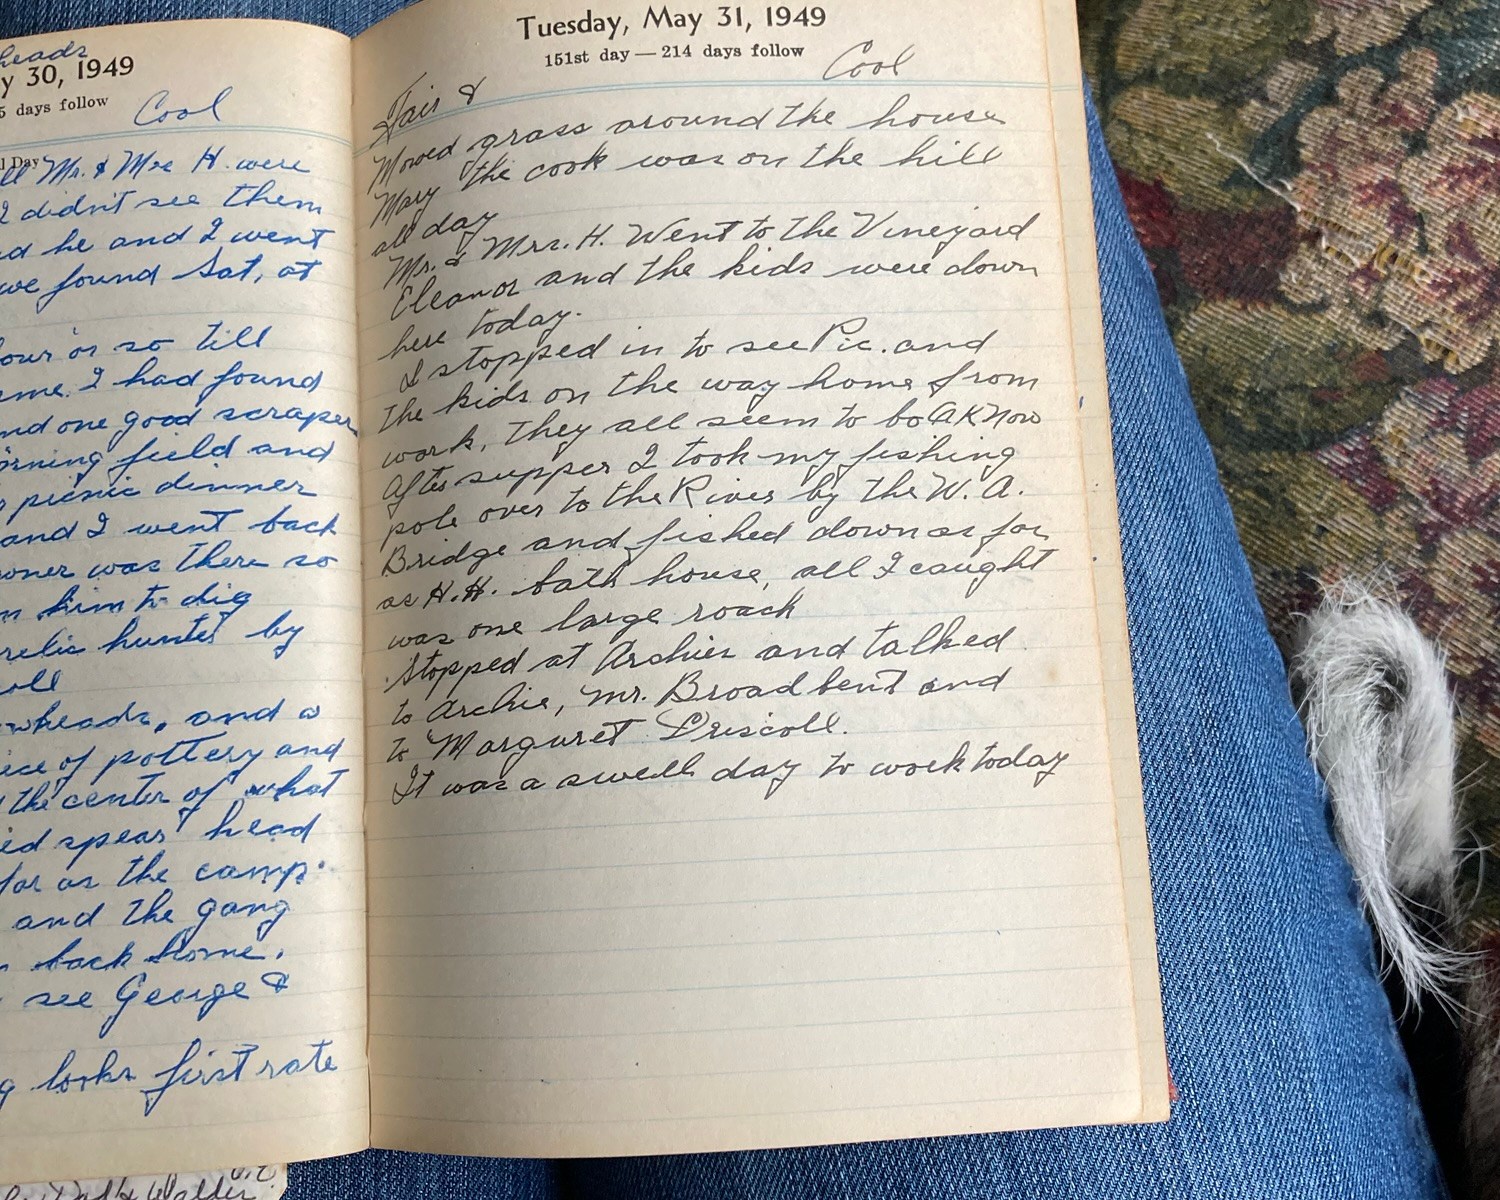 heads
y 30, 1949
5 days follow
Cool
l Day
Mr. & Mrs H. were
I didn't see them
he and I went
we found Sat, at
hour or so till
me. I had found
nd one good scraper
orning field and
picnic dinner
and I went back
owner was there so
him to dig
relic hunter by
oll
wheads, and a
ece of pottery and
the center of what
ed spear head
far as the camp.
and the gang
back home.
see George &
g looks first rate
Tuesday, May 31, 1949
151st day — 214 days follow
Fair & Cool
Mowed grass around the house
Mary the cook was on the hill
all day
Mr. & Mrs. H. Went to the Vineyard
Eleanor and the kids were down
here today.
I stopped in to see Pic. and
the kids on the way home from
work, they all seem to be OK now
After supper I took my fishing
pole over to the River by the W. A.
Bridge and fished down as far
as H.H. bath house, all I caught
was one large roach
Stopped at Archies and talked
to Archie, Mr. Broadbent and
to Marguret Driscoll.
It was a swell day to work today